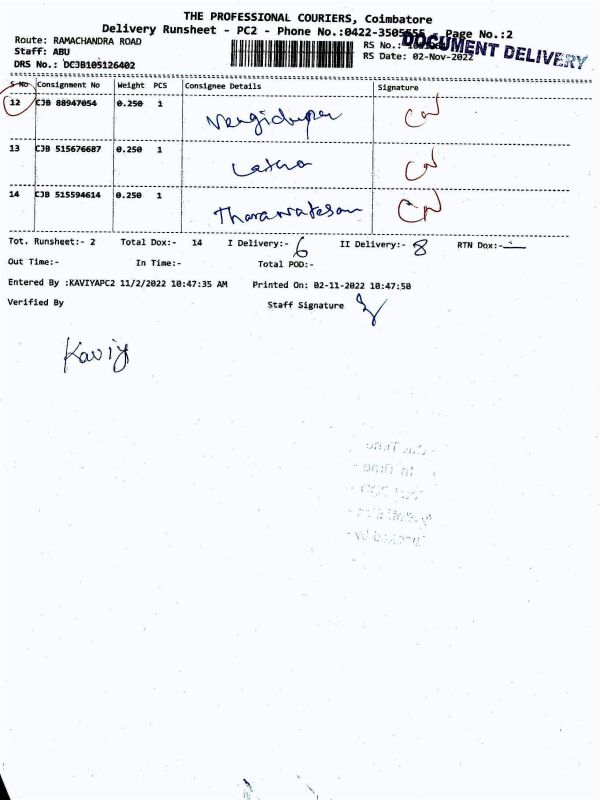 THE PROFESSIONAL COURIERS, Coimbatore
Delivery Runsheet - PC2 - Phone No.:0422-3505555 Page No.:2
DOCUMENT DELIVERY
Route: RAMACHANDRA ROAD
RS No.:
Staff: ABU
RS Date: 02-Nov-2022
DRS No.: DCJB105126402
S No Consignment No Weight PCS Consignee Details Signature
12 CJB 88947054 0.250 1
13 CJB 515676687 0.250 1 Latha
14 CJB 515594614 0.250 1
Tot. Runsheet:- 2 Total Dox:- 14 I Delivery:- 6 II Delivery:- 8 RTN Dox:- -
Out Time:- In Time:- Total POD:-
Entered By :KAVIYAPC2 11/2/2022 10:47:35 AM Printed On: 02-11-2022 10:47:50
Verified By Staff Signature
Kaviy